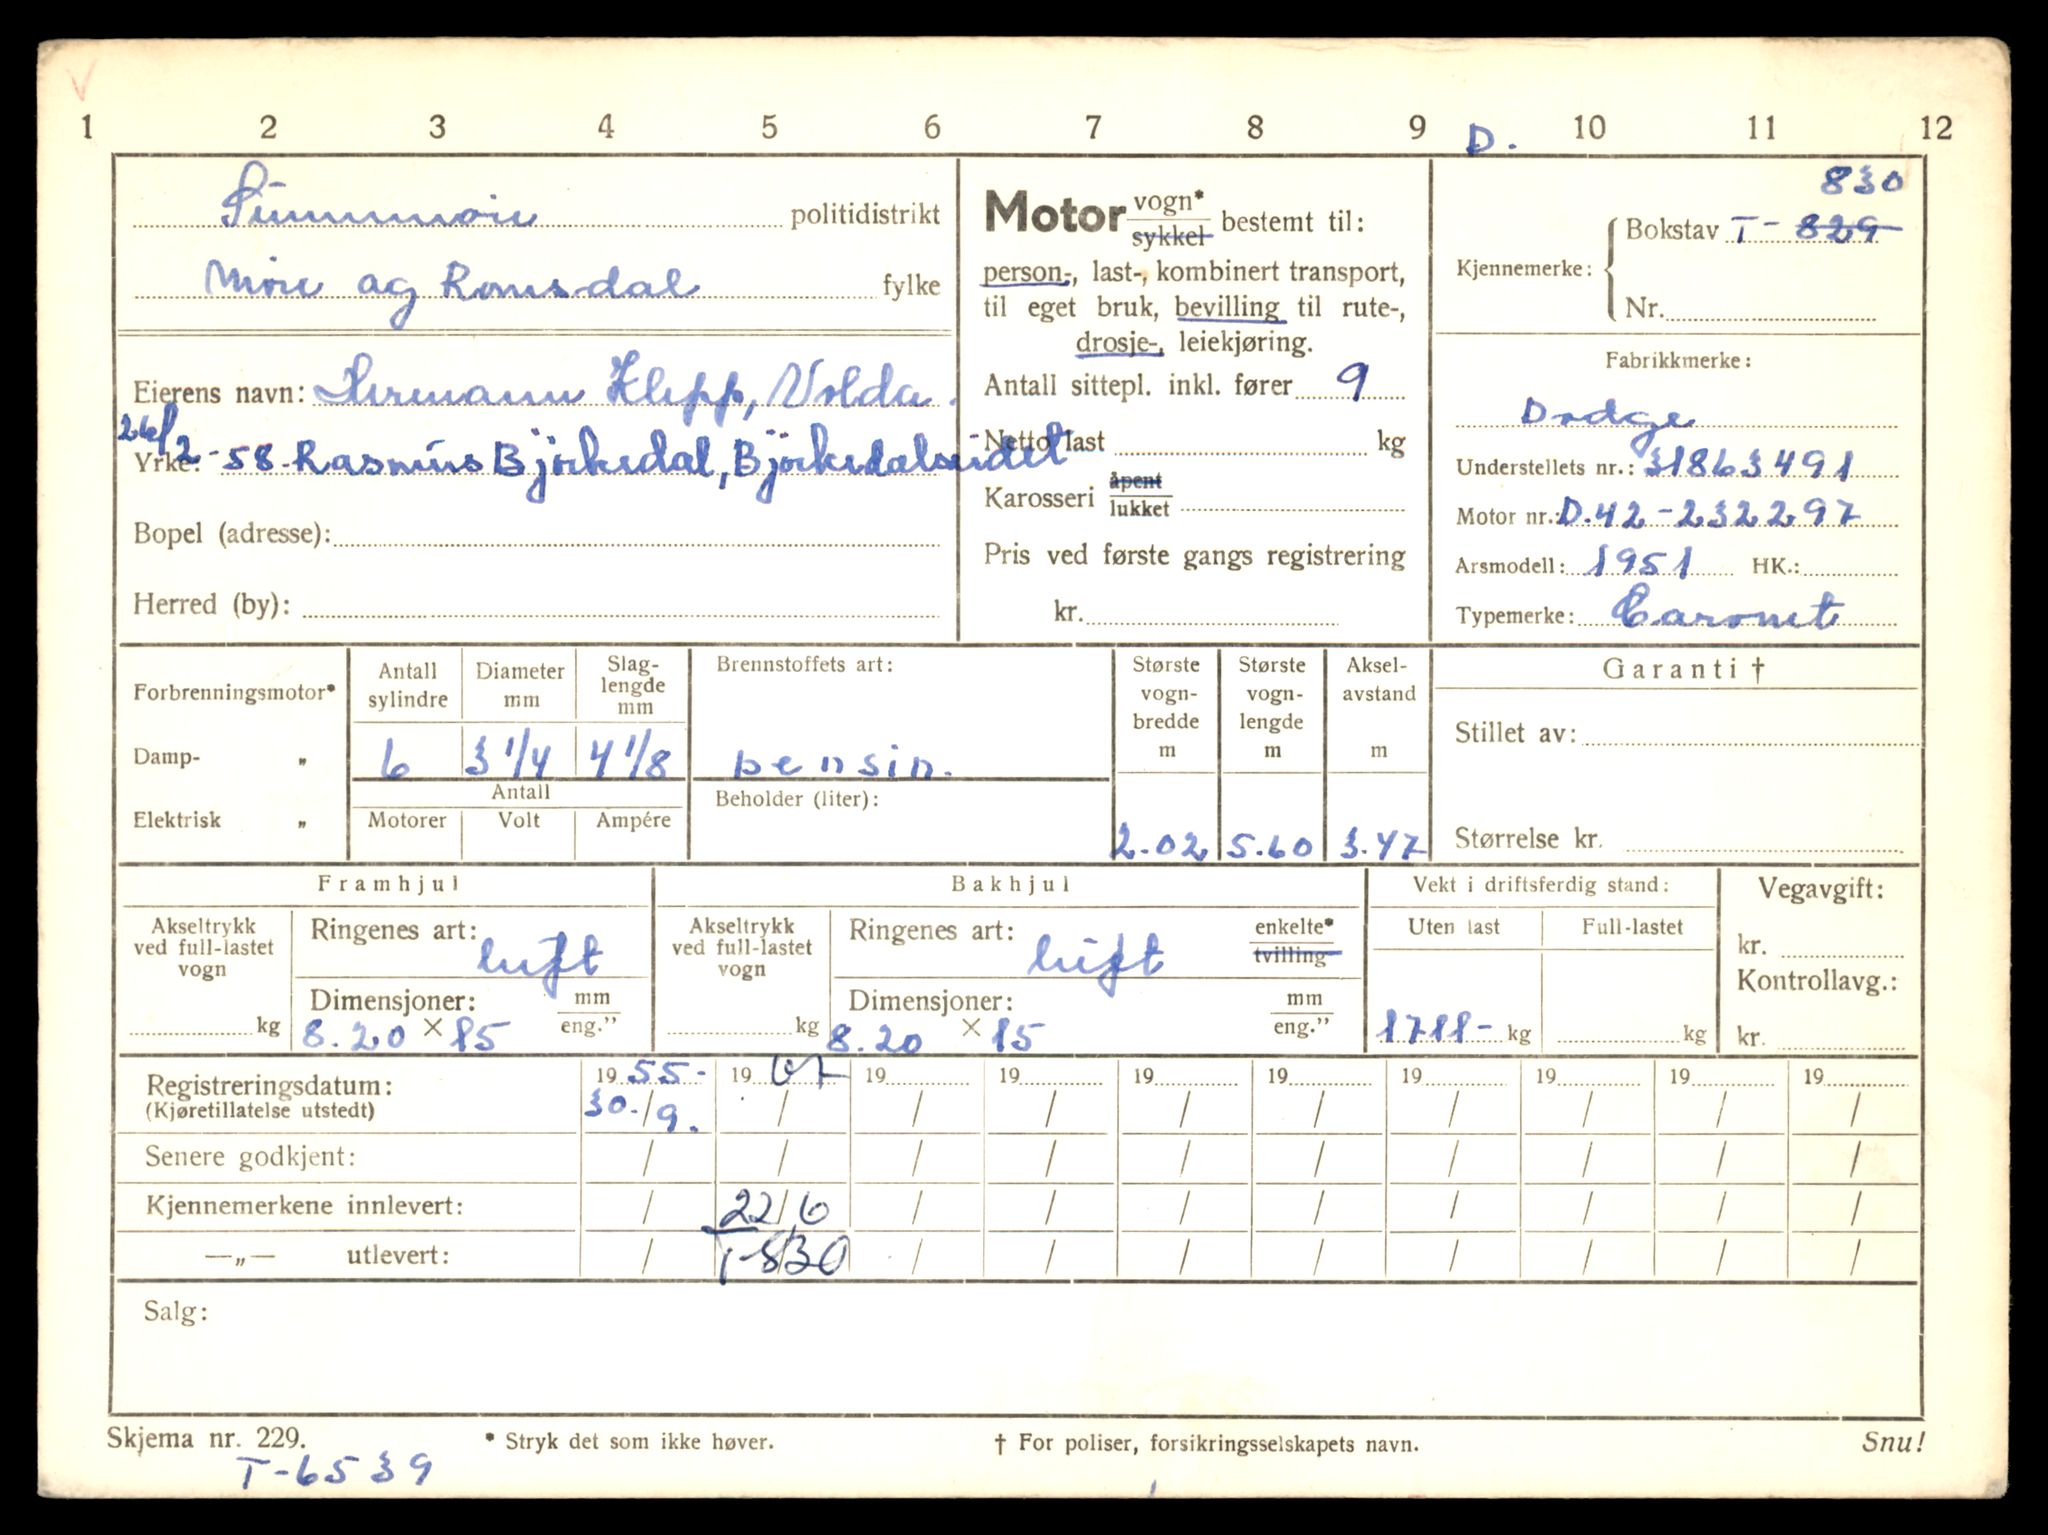 1 2 3 4 5 6 7 8 9 10 11 12
D.
Sunnmøre politidistrikt
Møre og Romsdal fylke
Eierens navn: Hermann Klepp, Volda.
26/2-58. Rasmus Bjørkedal, Bjørkedalseidet
Yrke:
Bopel (adresse):
Herred (by):
Motor vogn* sykkel bestemt til:
person-, last-, kombinert transport,
til eget bruk, bevilling til rute-,
drosje-, leiekjøring.
Antall sittepl. inkl. fører 9
Netto last kg
Karosseri åpent lukket
Pris ved første gangs registrering
kr.
830
Kjennemerke: Bokstav T- 829
Nr.
Fabrikkmerke:
Dodge
Understellets nr.: 31863491
Motor nr.: D.42-232297
Arsmodell: 1951 HK.:
Typemerke: Coronet
Forbrenningsmotor*
Damp- „
Elektrisk „
Antall sylindre
6
Diameter mm
3 1/4
Slag-
lengde
mm
4 1/8
Antall
Motorer Volt Ampére
Brennstoffets art:
bensin.
Beholder (liter):
Største
vogn-
bredde
m
2.02
Største
vogn-
lengde
m
5.60
Aksel-
avstand
m
3.47
Garanti †
Stillet av:
Størrelse kr.
Framhjul
Akseltrykk
ved full-lastet
vogn
kg
Ringenes art: luft
Dimensjoner: mm eng.”
8.20 × 15
Bakhjul
Akseltrykk
ved full-lastet
vogn
kg
Ringenes art: luft enkelte* tvilling
Dimensjoner: mm eng.”
8.20 × 15
Vekt i driftsferdig stand:
Uten last Full-lastet
1711- kg kg
Vegavgift:
kr.
Kontrollavg.:
kr.
Registreringsdatum: 19 55- 19 67 19 19 19 19 19 19 19 19
(Kjøretillatelse utstedt) 30./9. / / / / / / / / /
Senere godkjent: / / / / / / / / / /
Kjennemerkene innlevert: / 22/6 / / / / / / / /
—„— utlevert: / T-830 / / / / / / / /
Salg:
Skjema nr. 229. * Stryk det som ikke høver. † For poliser, forsikringsselskapets navn. Snu!
T-6539